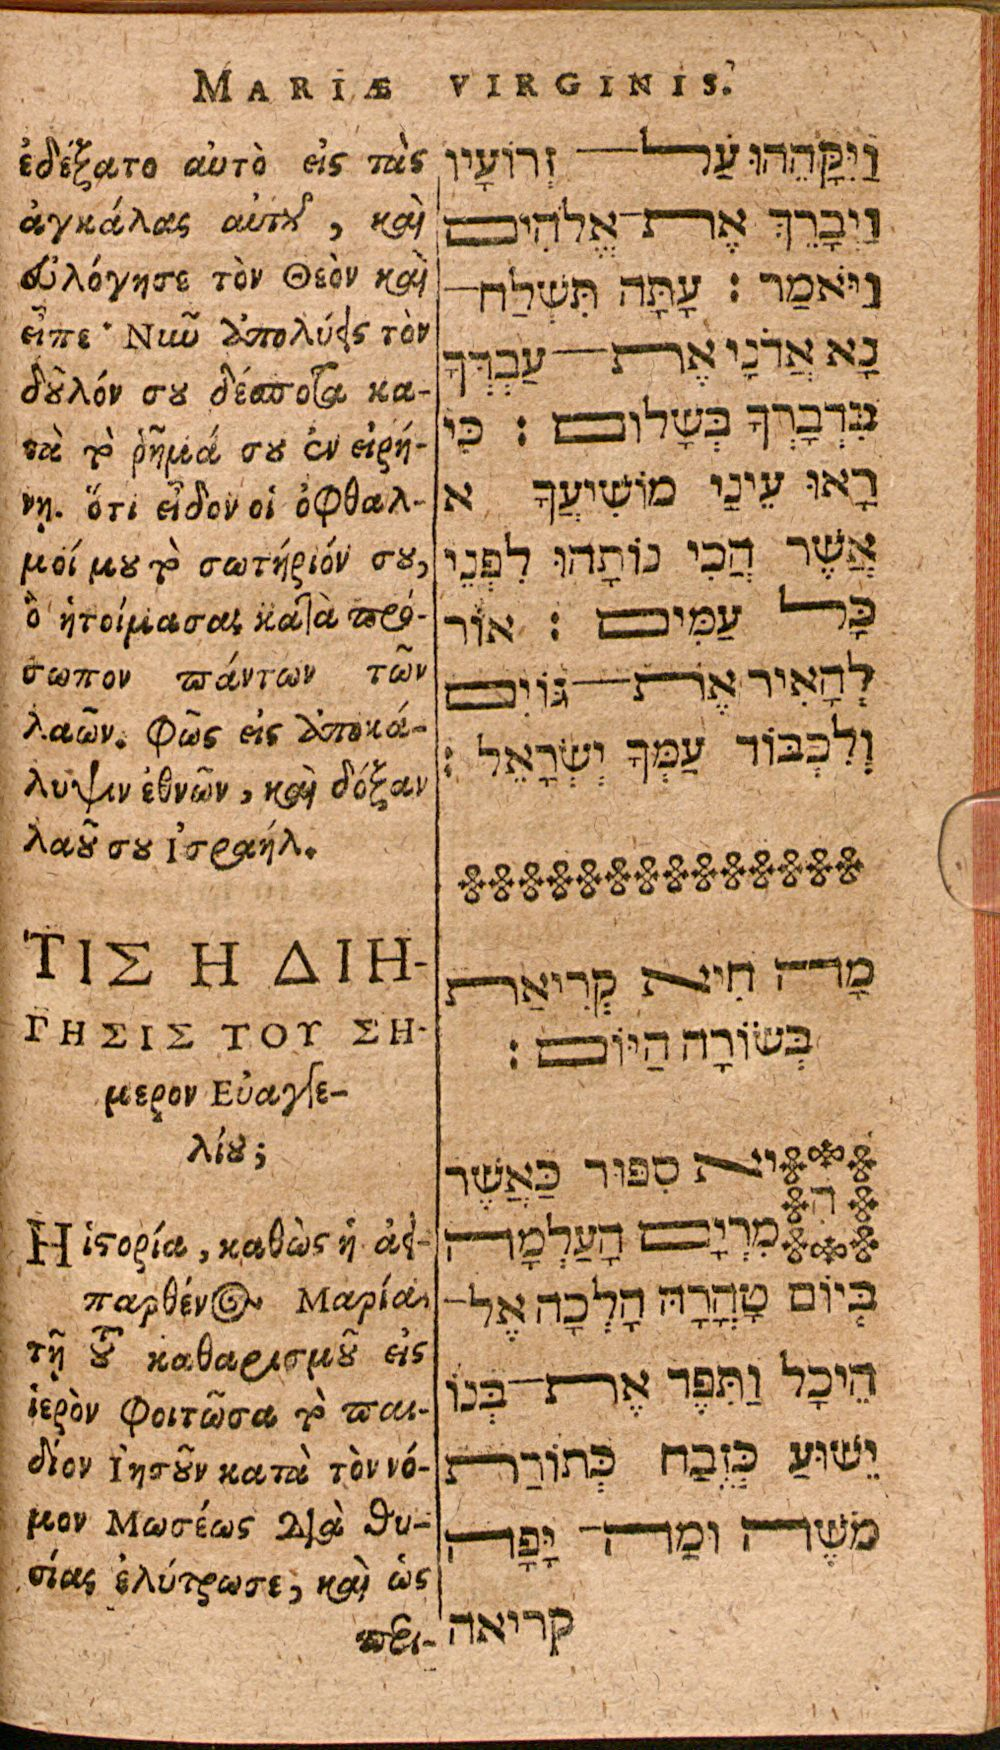 MARIÆ VIRGINIS.
ἐδέξατο αὐτὸ εἰς τὰς
ἀγκάλας αὐτοῦ, καὶ
εὐλόγησε τὸν Θεὸν καὶ
εἶπε· Νῦν ἀπολύεις τὸν
δοῦλόν σου δέσποτα κα-
τὰ τὸ ῥῆμά σου ἐν εἰρή-
νῃ. ὅτι εἶδον οἱ ὀφθαλ-
μοί μου τὸ σωτήριόν σου,
ὃ ἡτοίμασας κατὰ πρό-
σωπον πάντων τῶν
λαῶν. Φῶς εἰς ἀποκά-
λυψιν ἐθνῶν, καὶ δόξαν
λαοῦ σου Ἰσραήλ.
ΤΙΣ Η ΔΙΗ-
ΓΗΣΙΣ ΤΟΥ ΣΗ-
μερον Εὐαγγε-
λίου;
Η ἱστορία, καθὼς ἡ ἀει-
παρθένος Μαρία
τῇ τοῦ καθαρισμοῦ εἰς
ἱερὸν φοιτῶσα τὸ παι-
δίον Ἰησοῦν κατὰ τὸν νό-
μον Μωσέως διὰ θυ-
σίας ἐλύτρωσε, καὶ ὡς
περι-
וַיִּקָּהֵהוּ עַל־ זְרוֹעָיו
וַיְבָרֵךְ אֶת־אֱלֹהִים
וַיֹּאמַר : עָתָּה תִּשְׁלַח־
נָא אֲדֹנָי אֶת־עַבְדְּךָ
בִּדְבָרְךָ בְּשָׁלוֹם : כִּי
רָאוּ עֵינַי מוֹשִׁיעֲךָ א
אֲשֶׁר הֲכִי נוֹתָהוּ לִפְנֵי
כָּל עַמִּים : אוֹר
לְהָאִיר אֶת־גּוֹיִם
וְלִכְבּוֹד עַמְּךָ יִשְׂרָאֵל :
מָה הִיא קְרִיאַת
בְּשׂוֹרָה הַיּוֹם :
הִיא סִפּוּר כַּאֲשֶׁר
מִרְיָם הָעַלְמָה
בְּיוֹם טָהֳרָהּ הָלְכָה אֶל־
הֵיכָל וַתִּפֶר אֶת־בְּנוֹ
יֵשׁוּעַ כְּזֶבַח כְּתוֹרַת
מֹשֶׁה וּמַה־ יָּפָה
קריאה